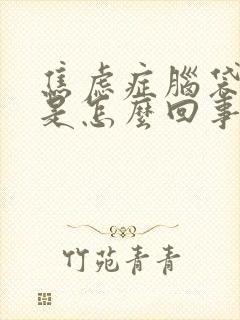 焦虑症腦袋
是怎麼回事
竹苑青青